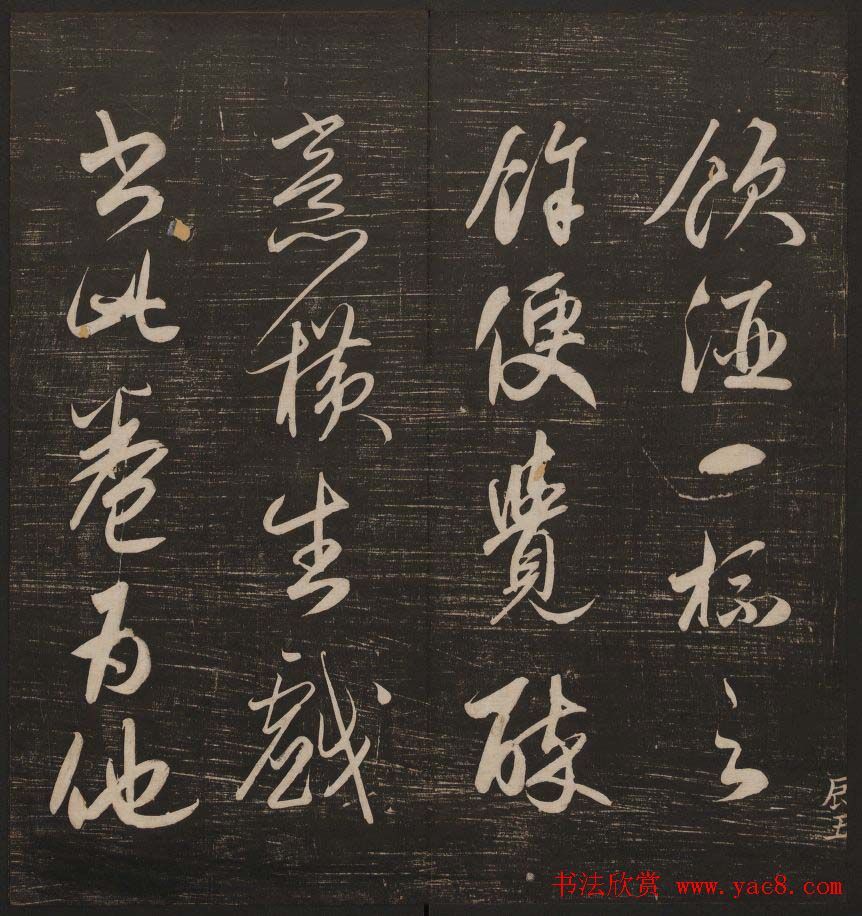 飲酒一杯之
餘便覺醉
意橫生戲
書此卷為他
辰五
书法欣赏 www.yac8.com